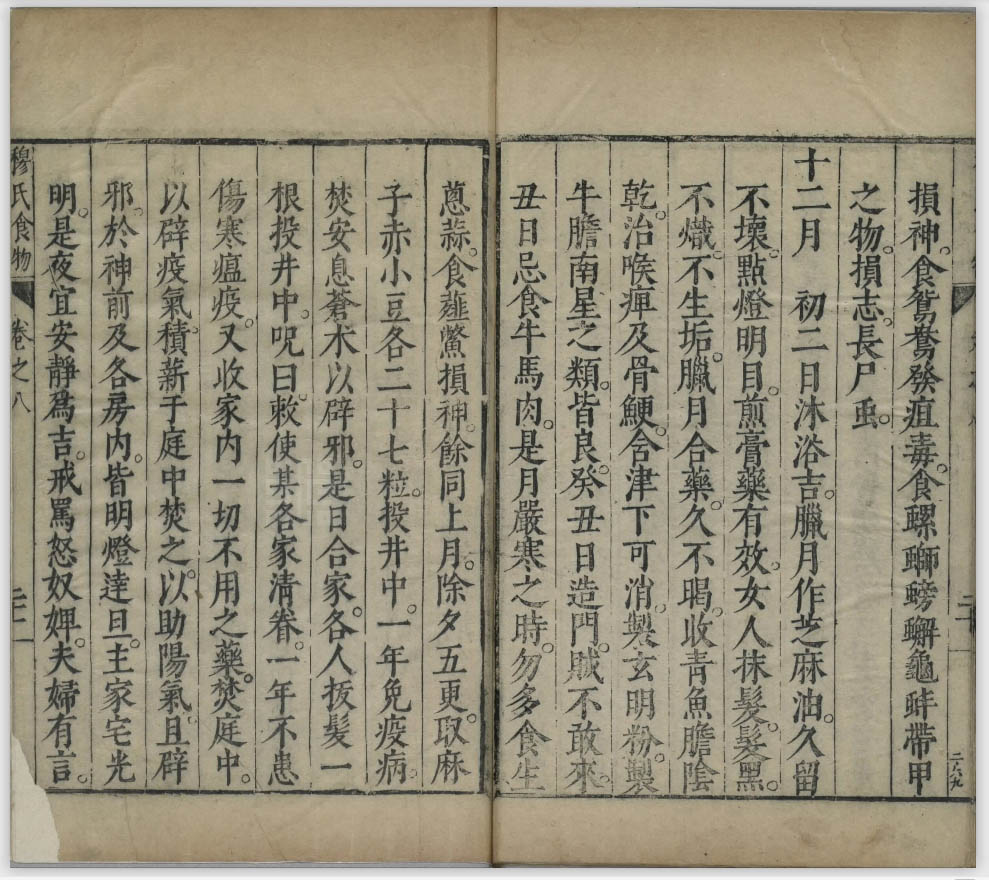 損神。食鴛鴦發疽毒。食螺螄螃蠏龜蚌帶甲
之物。損志。長尸虫。
十二月　初二日沐浴吉。臘月作芝麻油。久留
不壞。點燈明目。煎膏藥有效。女人抹髮。髮黑。
不熾。不生垢。臘月合藥。久不暍。收青魚膽陰
乾。治喉痺及骨鯁。合津下可消。製玄明粉。製
牛膽南星之類。皆良。癸丑日造門。賊不敢來。
丑日忌食牛馬肉。是月嚴寒之時。勿多食生
蔥蒜。食薤鱉損神。餘同上月。除夕五更。取麻
子赤小豆各二十七粒。投井中。一年免疫病。
焚安息蒼术以辟邪。是日合家。各人拔髮一
根投井中。呪曰。敕使某各家清眷。一年不患
傷寒瘟疫。又收家內一切不用之藥。焚庭中。
以辟疫氣。積薪于庭中焚之。以助陽氣。且辟
邪。於神前及各房內。皆明燈達旦。主家宅光
明。是夜宜安靜爲吉。戒罵怒奴婢。夫婦有言。
穆氏食物
卷之八